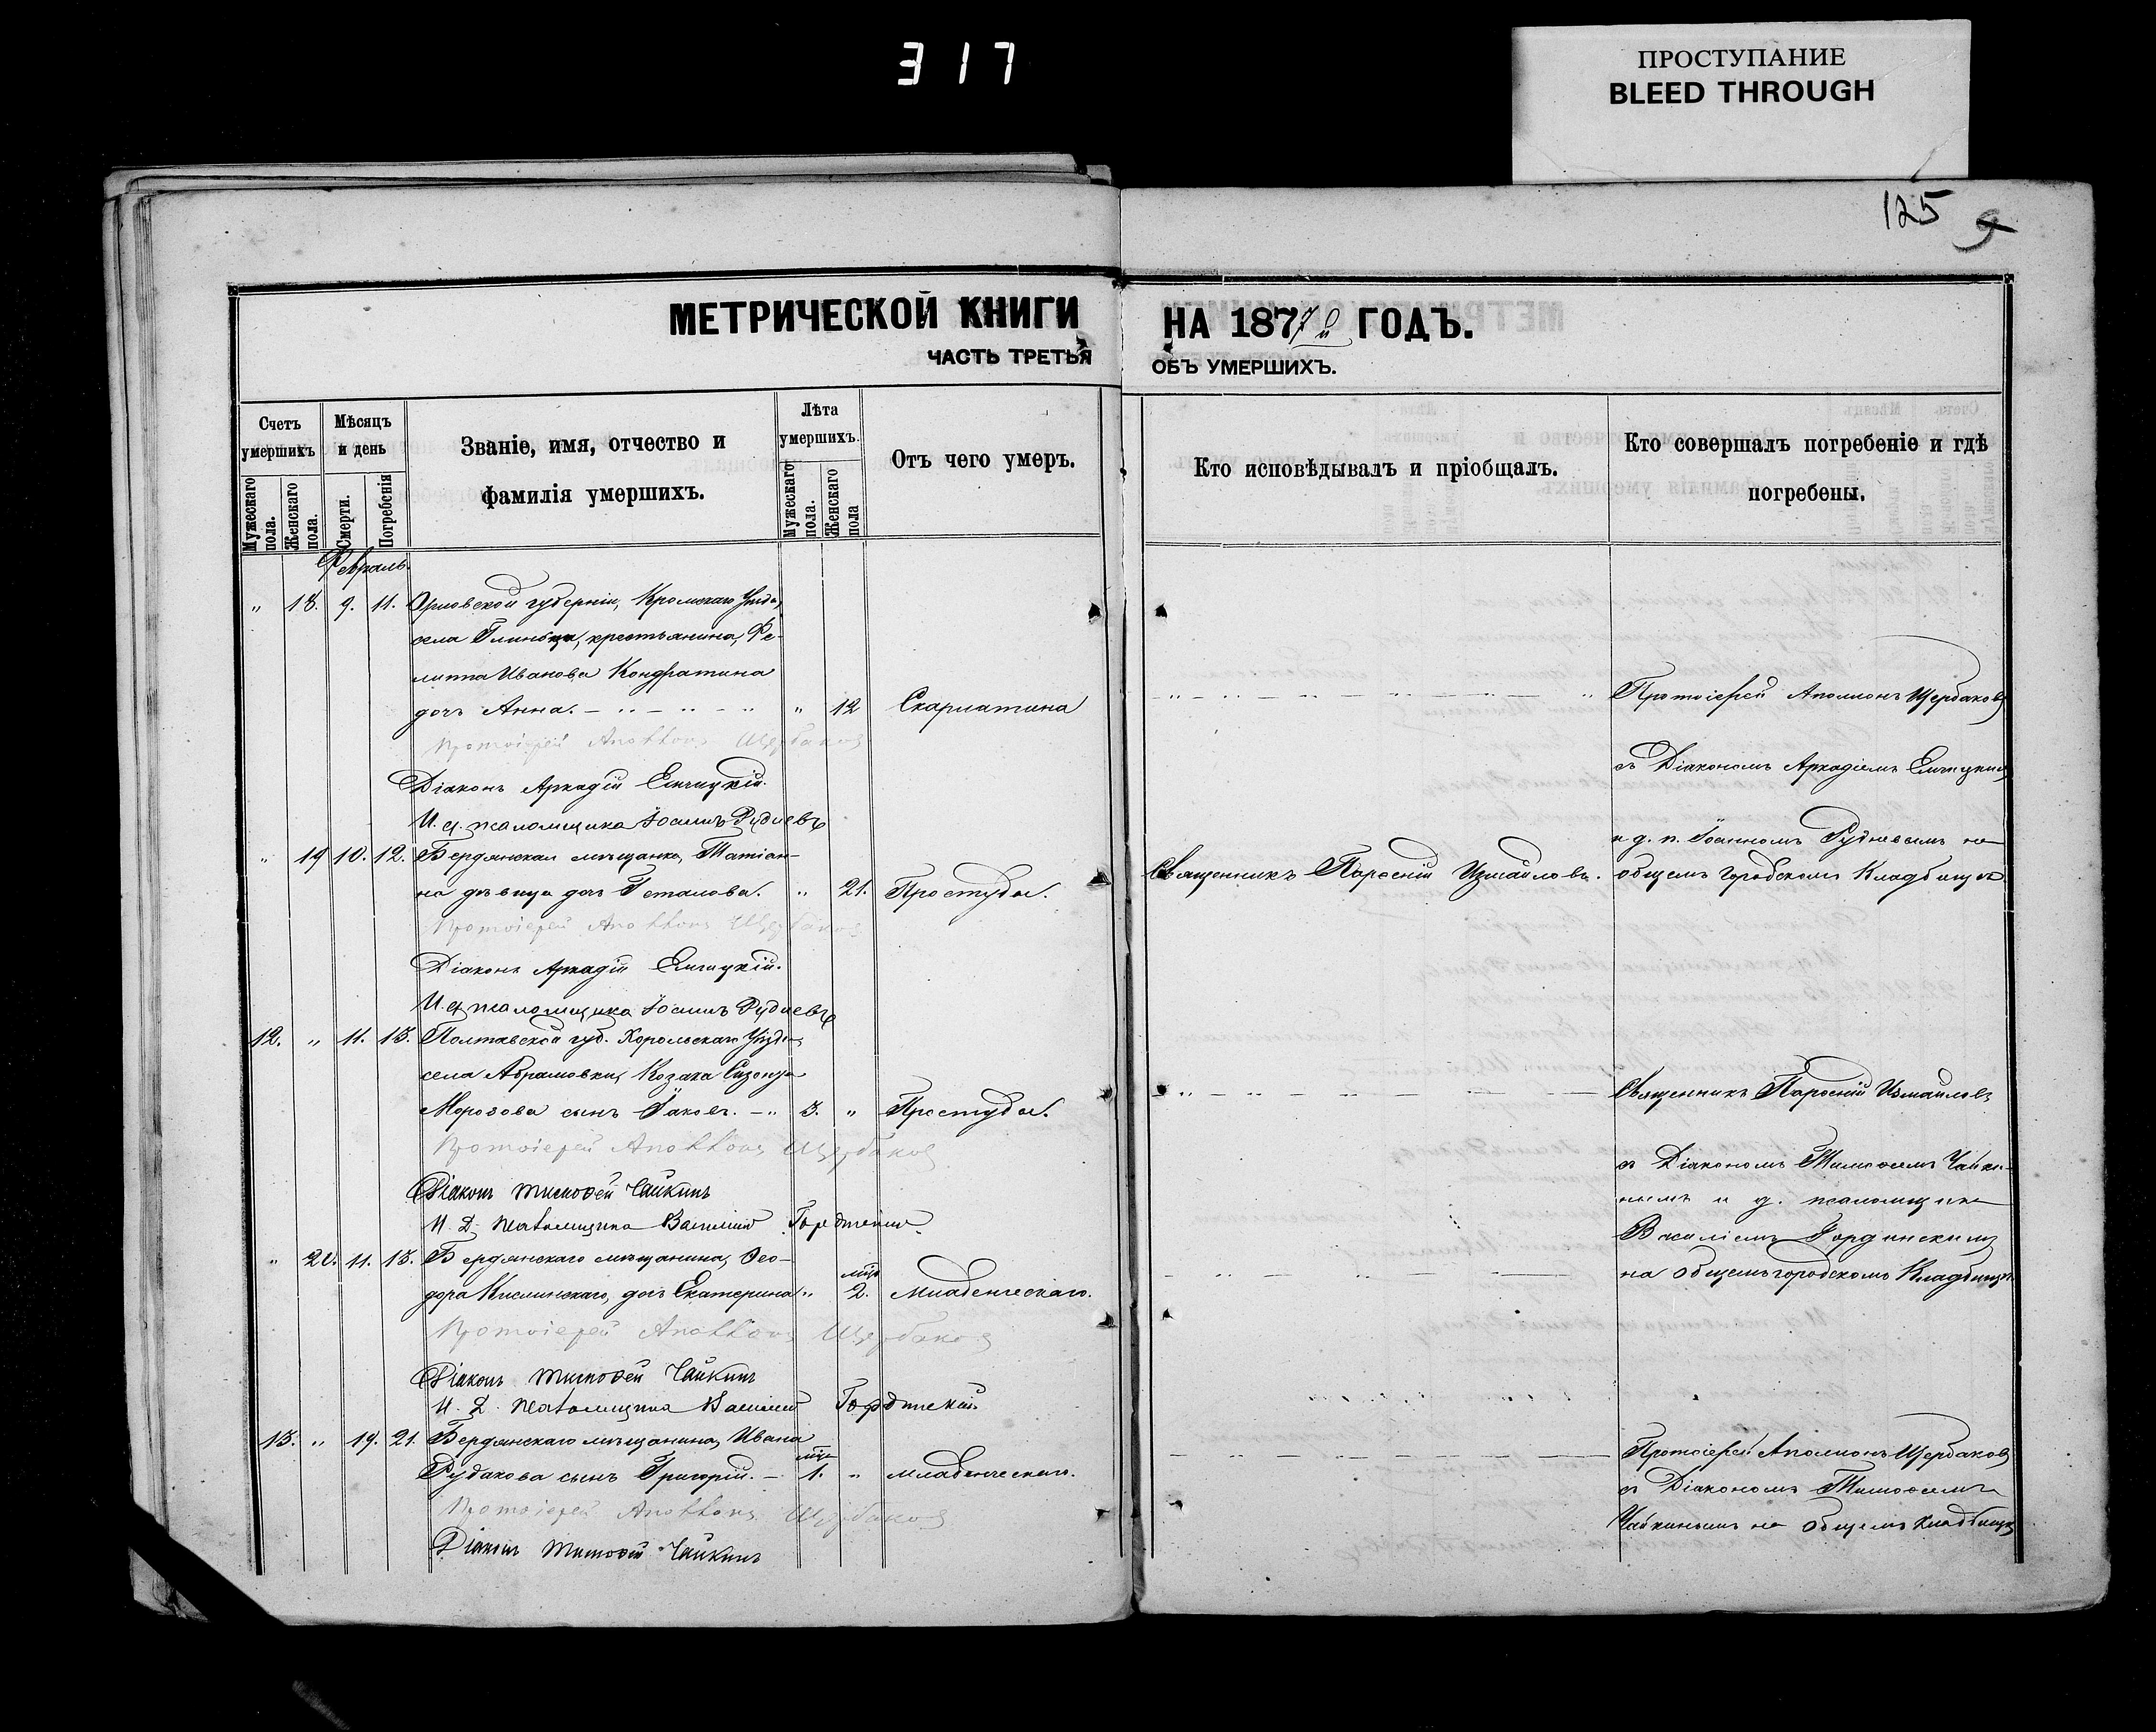 317
ПРОСТУПАНИЕ
BLEED THROUGH
125
МЕТРИЧЕСКОЙ КНИГИ НА 1877й ГОДЪ.
ЧАСТЬ ТРЕТЬЯ ОБЪ УМЕРШИХЪ.
Счетъ умершихъ
Мужескаго пола.
Женскаго пола.
Мѣсяцъ и день
Смерти.
Погребенія
Званіе, имя, отчество и
фамилія умершихъ.
Лѣта умершихъ.
Мужескаго пола.
Женскаго пола
Отъ чего умеръ.
Кто исповѣдывалъ и пріобщалъ.
Кто совершалъ погребеніе и гдѣ
погребены.
Февраль
" 18. 9. 11. Орловской губерніи, Кромскаго Уѣзда,
села Глинца, крестьянина, Фи-
липпа Иванова Кондратина
дочь Анна. " 12 Скарлатина
Протоіерей Аполлонъ Щербаковъ
Протоіерей Аполлонъ Щербаковъ
Діаконъ Аркадій
съ Діакономъ Аркадіемъ
И. д. псаломщика Іоаннъ Рудневъ
и д. п. Іоанномъ Рудневымъ на
общемъ городскомъ Кладбищѣ
" 19 10. 12. Бердянская мѣщанка, Татіан-
на дѣвица дочь " 21. Простуды.
Священникъ Парѳеній Измайловъ.
Протоіерей Аполлонъ Щербаковъ
Діаконъ Аркадій
И. д. псаломщика Іоаннъ Рудневъ
12. " 11. 13. Полтавской губ. Хорольскаго Уѣзда
села Абрамовки, Козака
Морозова сынъ Іаковъ. 3. " Простуды.
Священникъ Парѳеній Измайловъ
Протоіерей Аполлонъ Щербаковъ
съ Діакономъ Тимоѳеемъ Чайки-
Діаконъ Тимоѳей Чайкинъ
нымъ и д. псаломщика
И. Д. псаломщика Василій Гординскій
Василіемъ Гординскимъ
на общемъ городскомъ Кладбищѣ
" 20. 11. 13. Бердянскаго мѣщанина, Ѳео-
дора Кислинскаго, дочь Екатерина " 2. мца Младенческаго.
Протоіерей Аполлонъ Щербаковъ
Діаконъ Тимоѳей Чайкинъ
И. Д. псаломщика Василій Гординскій
13. " 19. 21. Бердянскаго мѣщанина, Ивана
Рудакова сынъ Григорій. 1. мца " Младенческаго.
Протоіерей Аполлонъ Щербаковъ
Протоіерей Аполлонъ Щербаковъ
съ Діакономъ Тимоѳеемъ
Діаконъ Тимоѳей Чайкинъ
Чайкинымъ на общемъ кладбищѣ